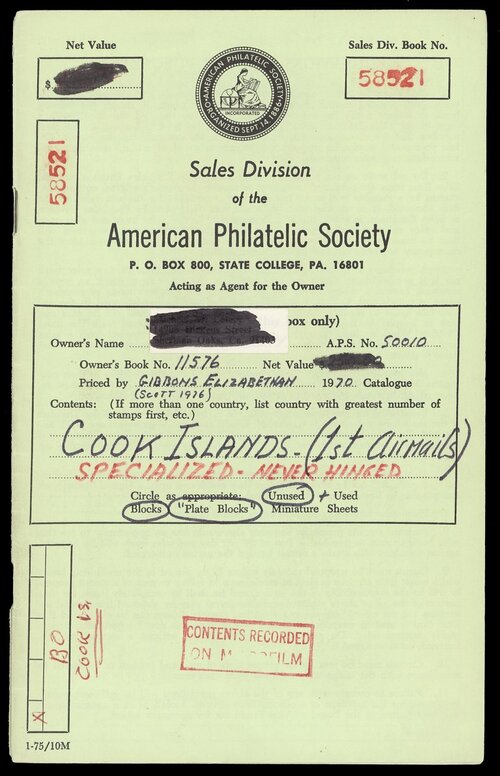 Net Value
Sales Div. Book No.
$
58521
58521
AMERICAN PHILATELIC SOCIETY
INCORPORATED
ORGANIZED SEPT. 14, 1886
Sales Division
of the
American Philatelic Society
P. O. BOX 800, STATE COLLEGE, PA. 16801
Acting as Agent for the Owner
box only)
Owner's Name A.P.S. No. 50010
Owner's Book No. 11576 Net Value
Priced by GIBBONS ELIZABETHAN 1970 Catalogue
(SCOTT 1976)
Contents: (If more than one country, list country with greatest number of
stamps first, etc.)
COOK ISLANDS - (1st AIRMAILS)
SPECIALIZED - NEVER HINGED
Circle as appropriate: Unused + Used
Blocks "Plate Blocks" Miniature Sheets
X BO
COOK IS.
CONTENTS RECORDED
ON M OFILM
1-75/10M